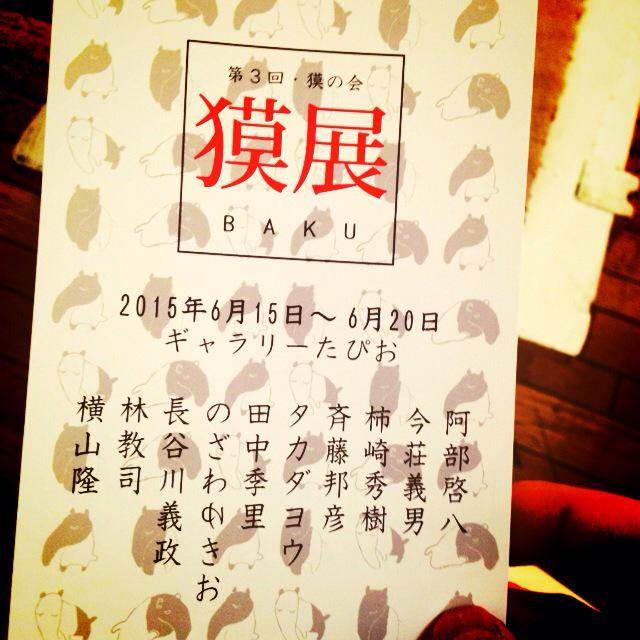 第3回・獏の会
獏展
BAKU
2015年6月15日～6月20日
ギャラリーたぴお
阿部啓八
今荘義男
柿崎秀樹
斉藤邦彦
タカダヨウ
田中季里
のざわゆきお
長谷川義政
林教司
横山隆